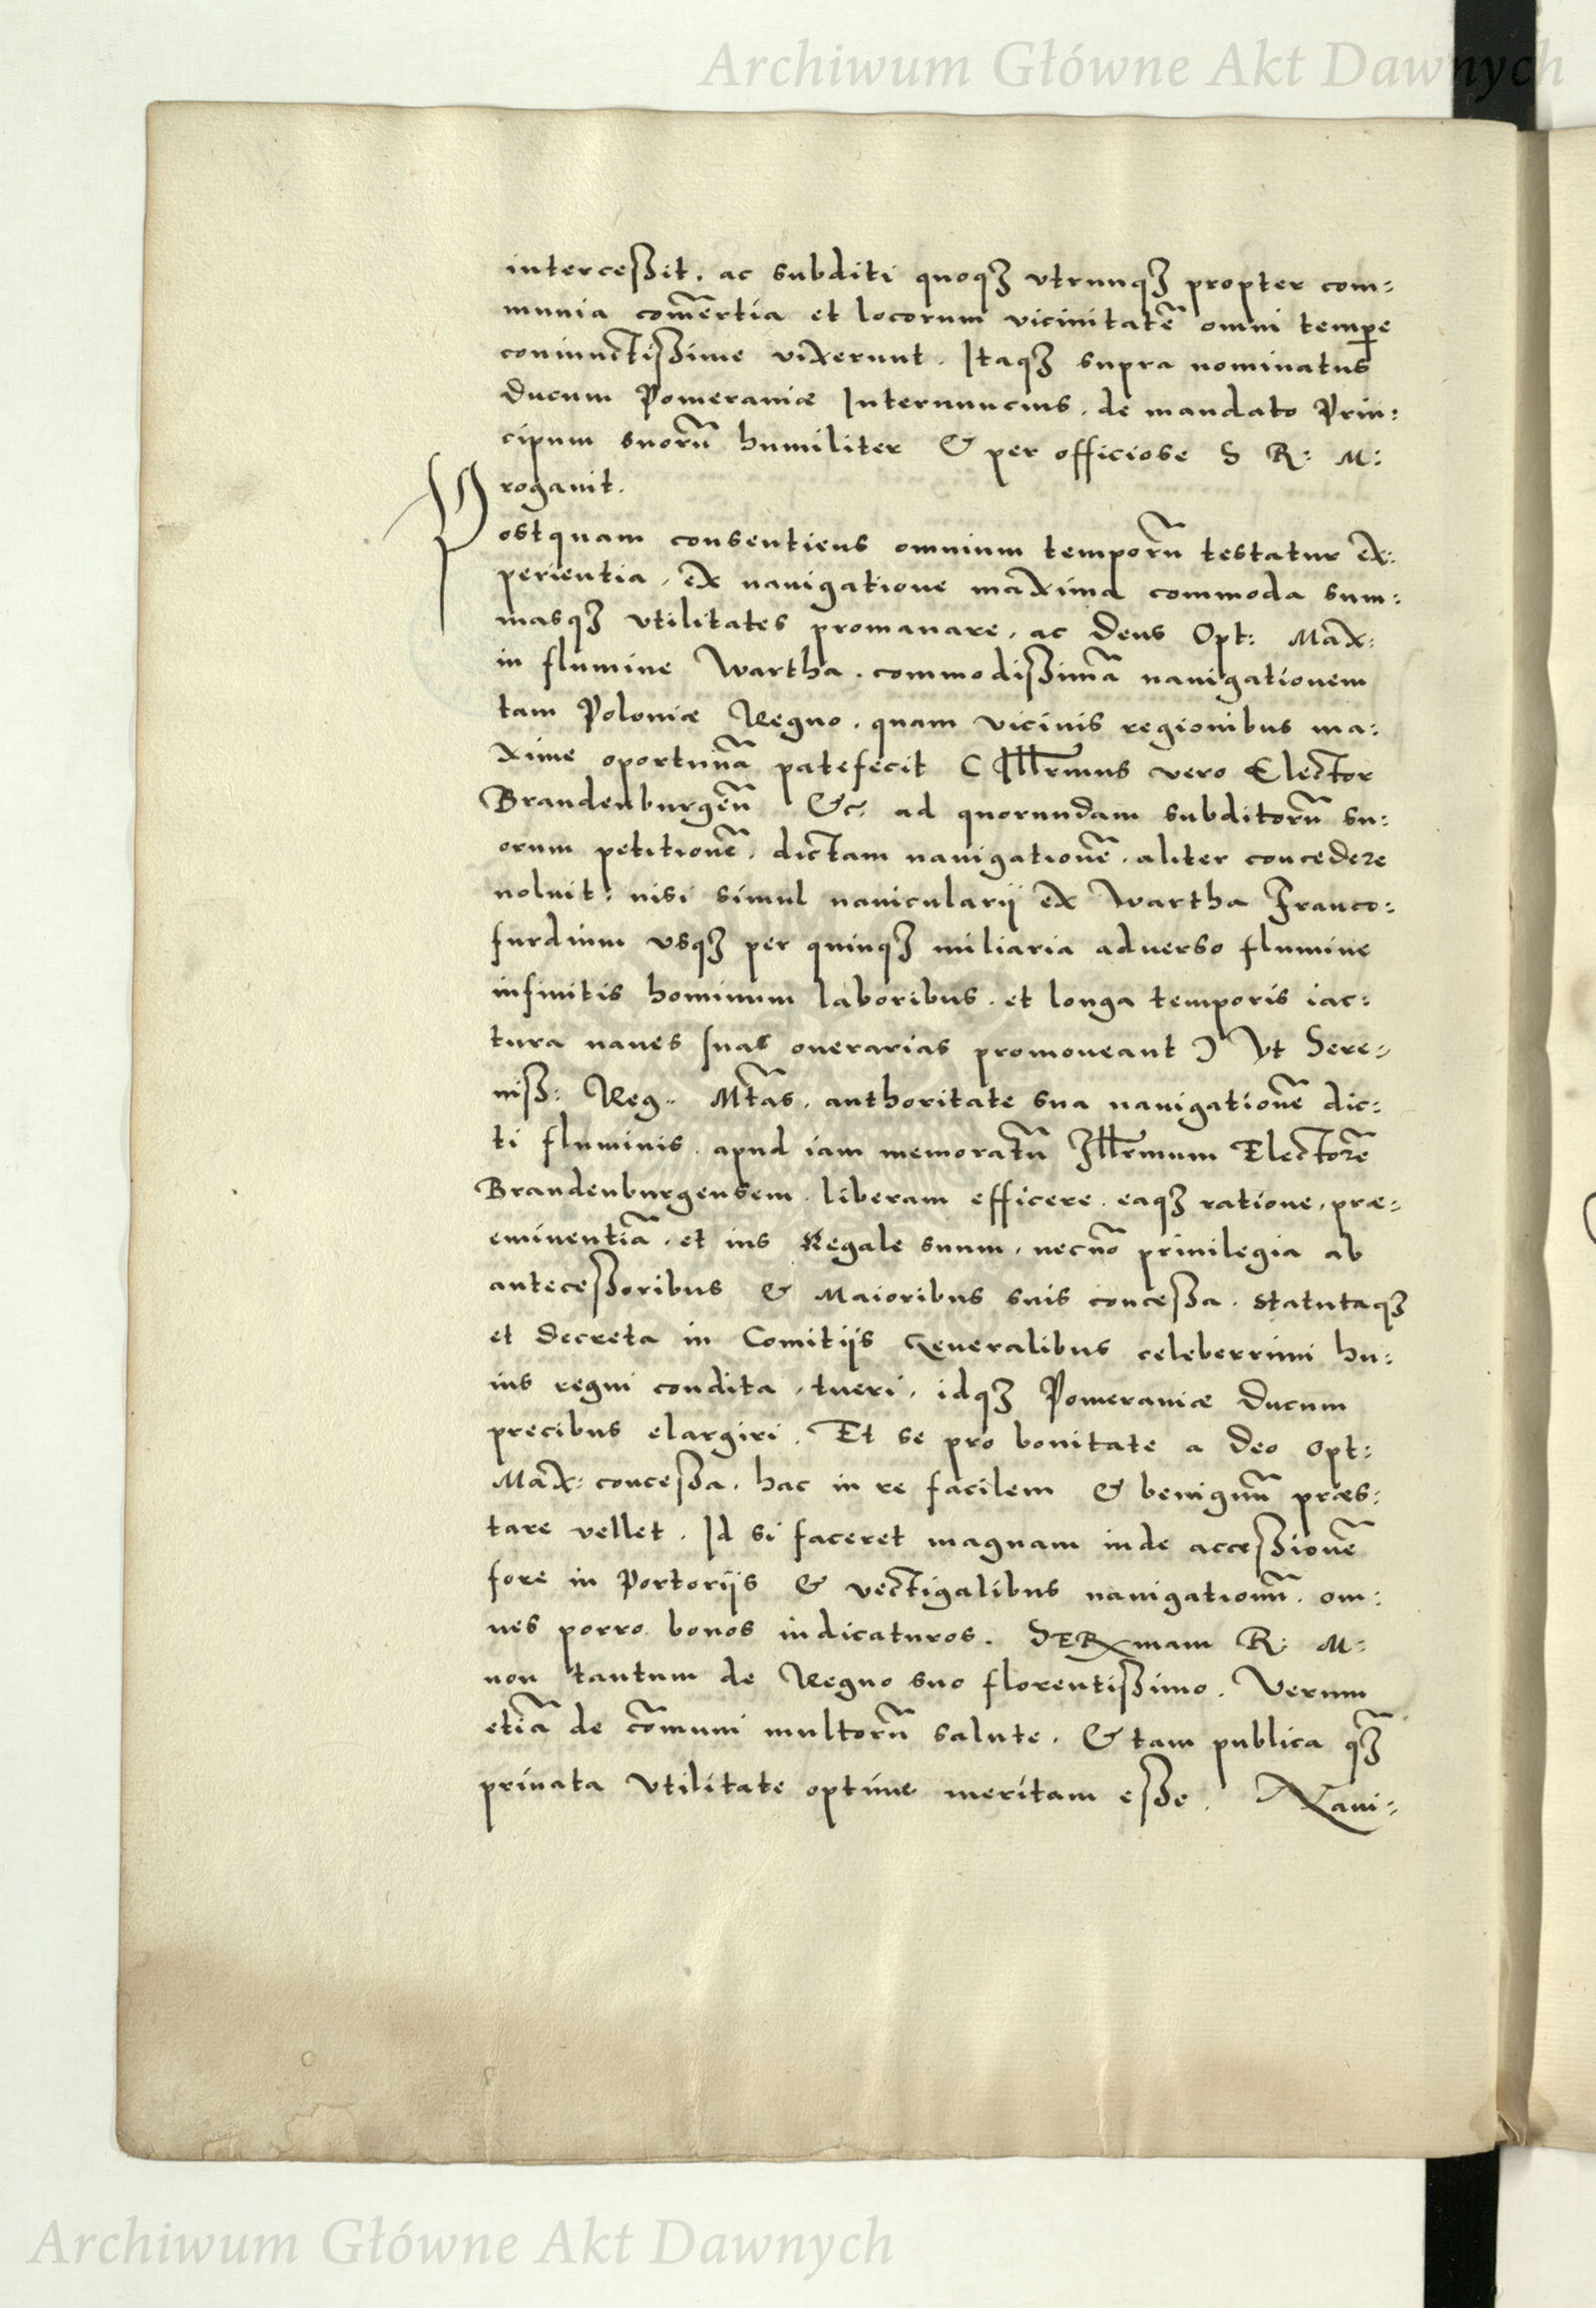 Archiwum Główne Akt Dawnych
interceßit. ac subditi quoqꝫ vtrunqꝫ propter com:
munia com̃ertia et locorum vicinitatẽ omni temꝑe
coniunctißime vixerunt. Itaqꝫ supra nominatus
Ducum Pomeraniæ Internuncius. de mandato Prin:
cipum suorũ humiliter & per officiose S R: M:
rogauit.
Postquam consentiens omnium temporũ testatur ex:
perientia, ex nauigatione maxima commoda sum:
masqꝫ vtilitates promanare, ac Deus Opt: Max:
in flumine Wartha. commodißimã nauigationem
tam Poloniæ Regno. quam vicinis regionibus ma:
xime oportunã patefecit ( Illr̃mus vero Elector
Brandenburgeñ &c. ad quorundam subditorũ su:
orum petitionẽ, dictam nauigationẽ. aliter concedere
noluit: nisi simul nauicularij ex Wartha Franco:
furdium vsqꝫ per quinqꝫ miliaria aduerso flumine
infinitis hominum laboribus. et longa temporis iac:
tura naues suas onerarias promoueant ) Vt Sere:
niß: Reg.. Mtãs. authoritate sua nauigationẽ dic:
ti fluminis. apud iam memoratũ Illr̃mum Electorẽ
Brandenburgensem. liberam efficere. eaqꝫ ratione, præ:
eminentiã. et ius Regale suum, necño priuilegia ab
anteceßoribus & Maioribus suis conceßa. statutaqꝫ
et decreta in Comitijs Generalibus celeberrimi hu:
ius regni condita, tueri, idqꝫ Pomeraniæ Ducum
precibus elargiri. Et se pro bonitate a Deo Opt:
Max: conceßa, hac in re facilem & benignũ præs:
tare vellet. Id si faceret magnam inde acceßionẽ
fore in Portorijs & vectigalibus nauigationũ. om:
nes porro bonos iudicaturos. SERmam R: M:
non tantum de Regno suo florentißimo. Verum
etiã de cõmuni multorũ salute. & tam publica qꝫ̃
priuata vtilitate optime meritam eße. Naui:
Archiwum Główne Akt Dawnych